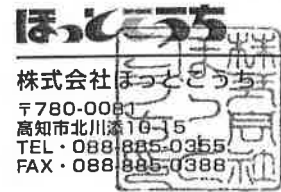 ほっとこうち
株式会社ほっとこうち
〒780-0081
高知市北川添10-15
TEL・088-885-0355
FAX・088-885-0388